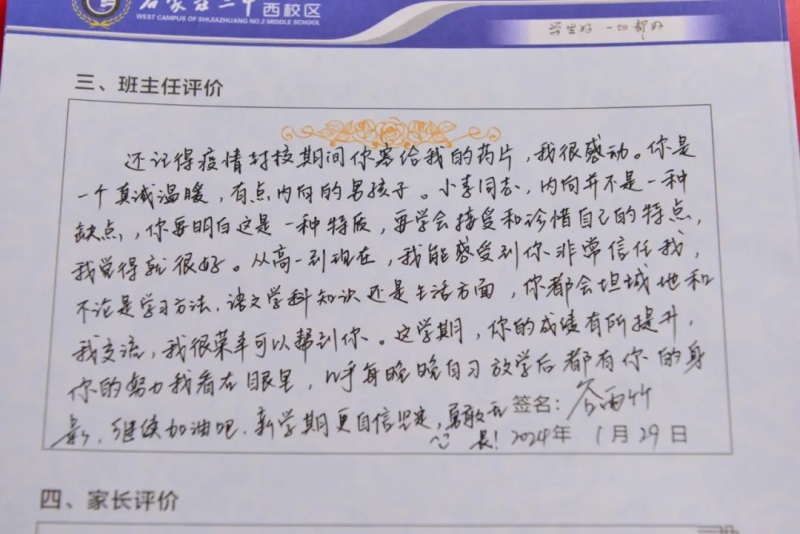 石家庄二中西校区
WEST CAMPUS OF SHIJIAZHUANG NO.2 MIDDLE SCHOOL
学生好 一切都好
三、班主任评价
还记得疫情封校期间你寄给我的药片，我很感动。你是
一个真诚温暖，有点内向的男孩子。小李同志，内向并不是一种
缺点，你要明白这是一种特质，要学会接受和珍惜自己的特点，
我觉得就很好。从高一到现在，我能感受到你非常信任我，
不论是学习方法，语文学科知识还是生活方面，你都会坦诚地和
我交流，我很荣幸可以帮到你。这学期，你的成绩有所提升，
你的努力我看在眼里，几乎每晚晚自习放学后都有你的身
影，继续加油吧，新学期更自信坚定，勇敢无
畏！
签名：
2024年 1月29日
四、家长评价